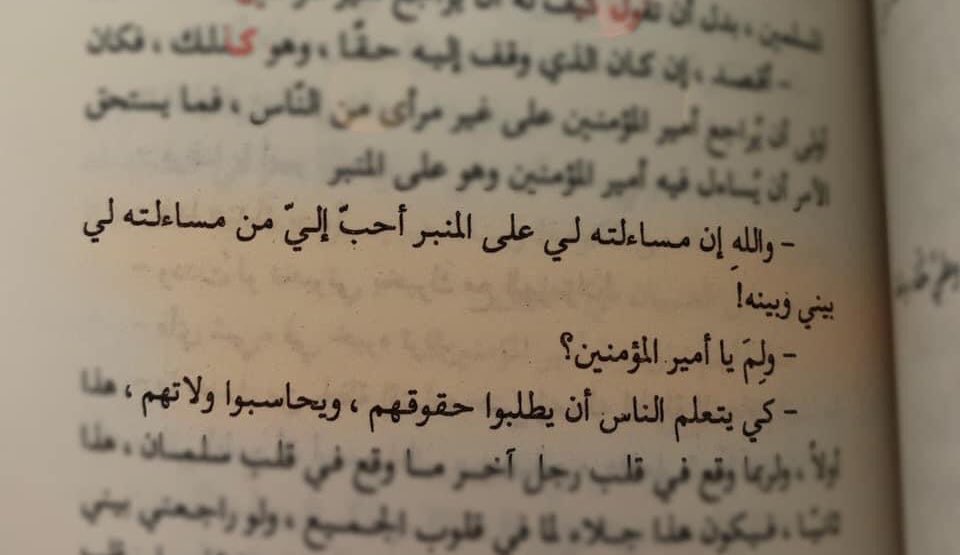 المسلمين ، بدل أن تقول كيف له أن يراجع أمير
- أقصد ، إن كان الذي وقف إليه حقًا ، وهو كذلك ، فكان
أولى أن يُراجع أمير المؤمنين على غير مرأى من النّاس ، فما يستحق
الأمر أن يُساءل فيه أمير المؤمنين وهو على المنبر
- واللهِ إن مساءلته لي على المنبر أحبّ إليّ من مساءلته لي
بيني وبينه!
- ولِمَ يا أمير المؤمنين؟
- كي يتعلم الناس أن يطلبوا حقوقهم ، ويحاسبوا ولاتهم ، هذا
أولاً ، ولربما وقع في قلب رجل آخر ما وقع في قلب سلمان ، هذا
ثانيًا ، فيكون هذا جلاء لما في قلوب الجميع ، ولو راجعني بيني